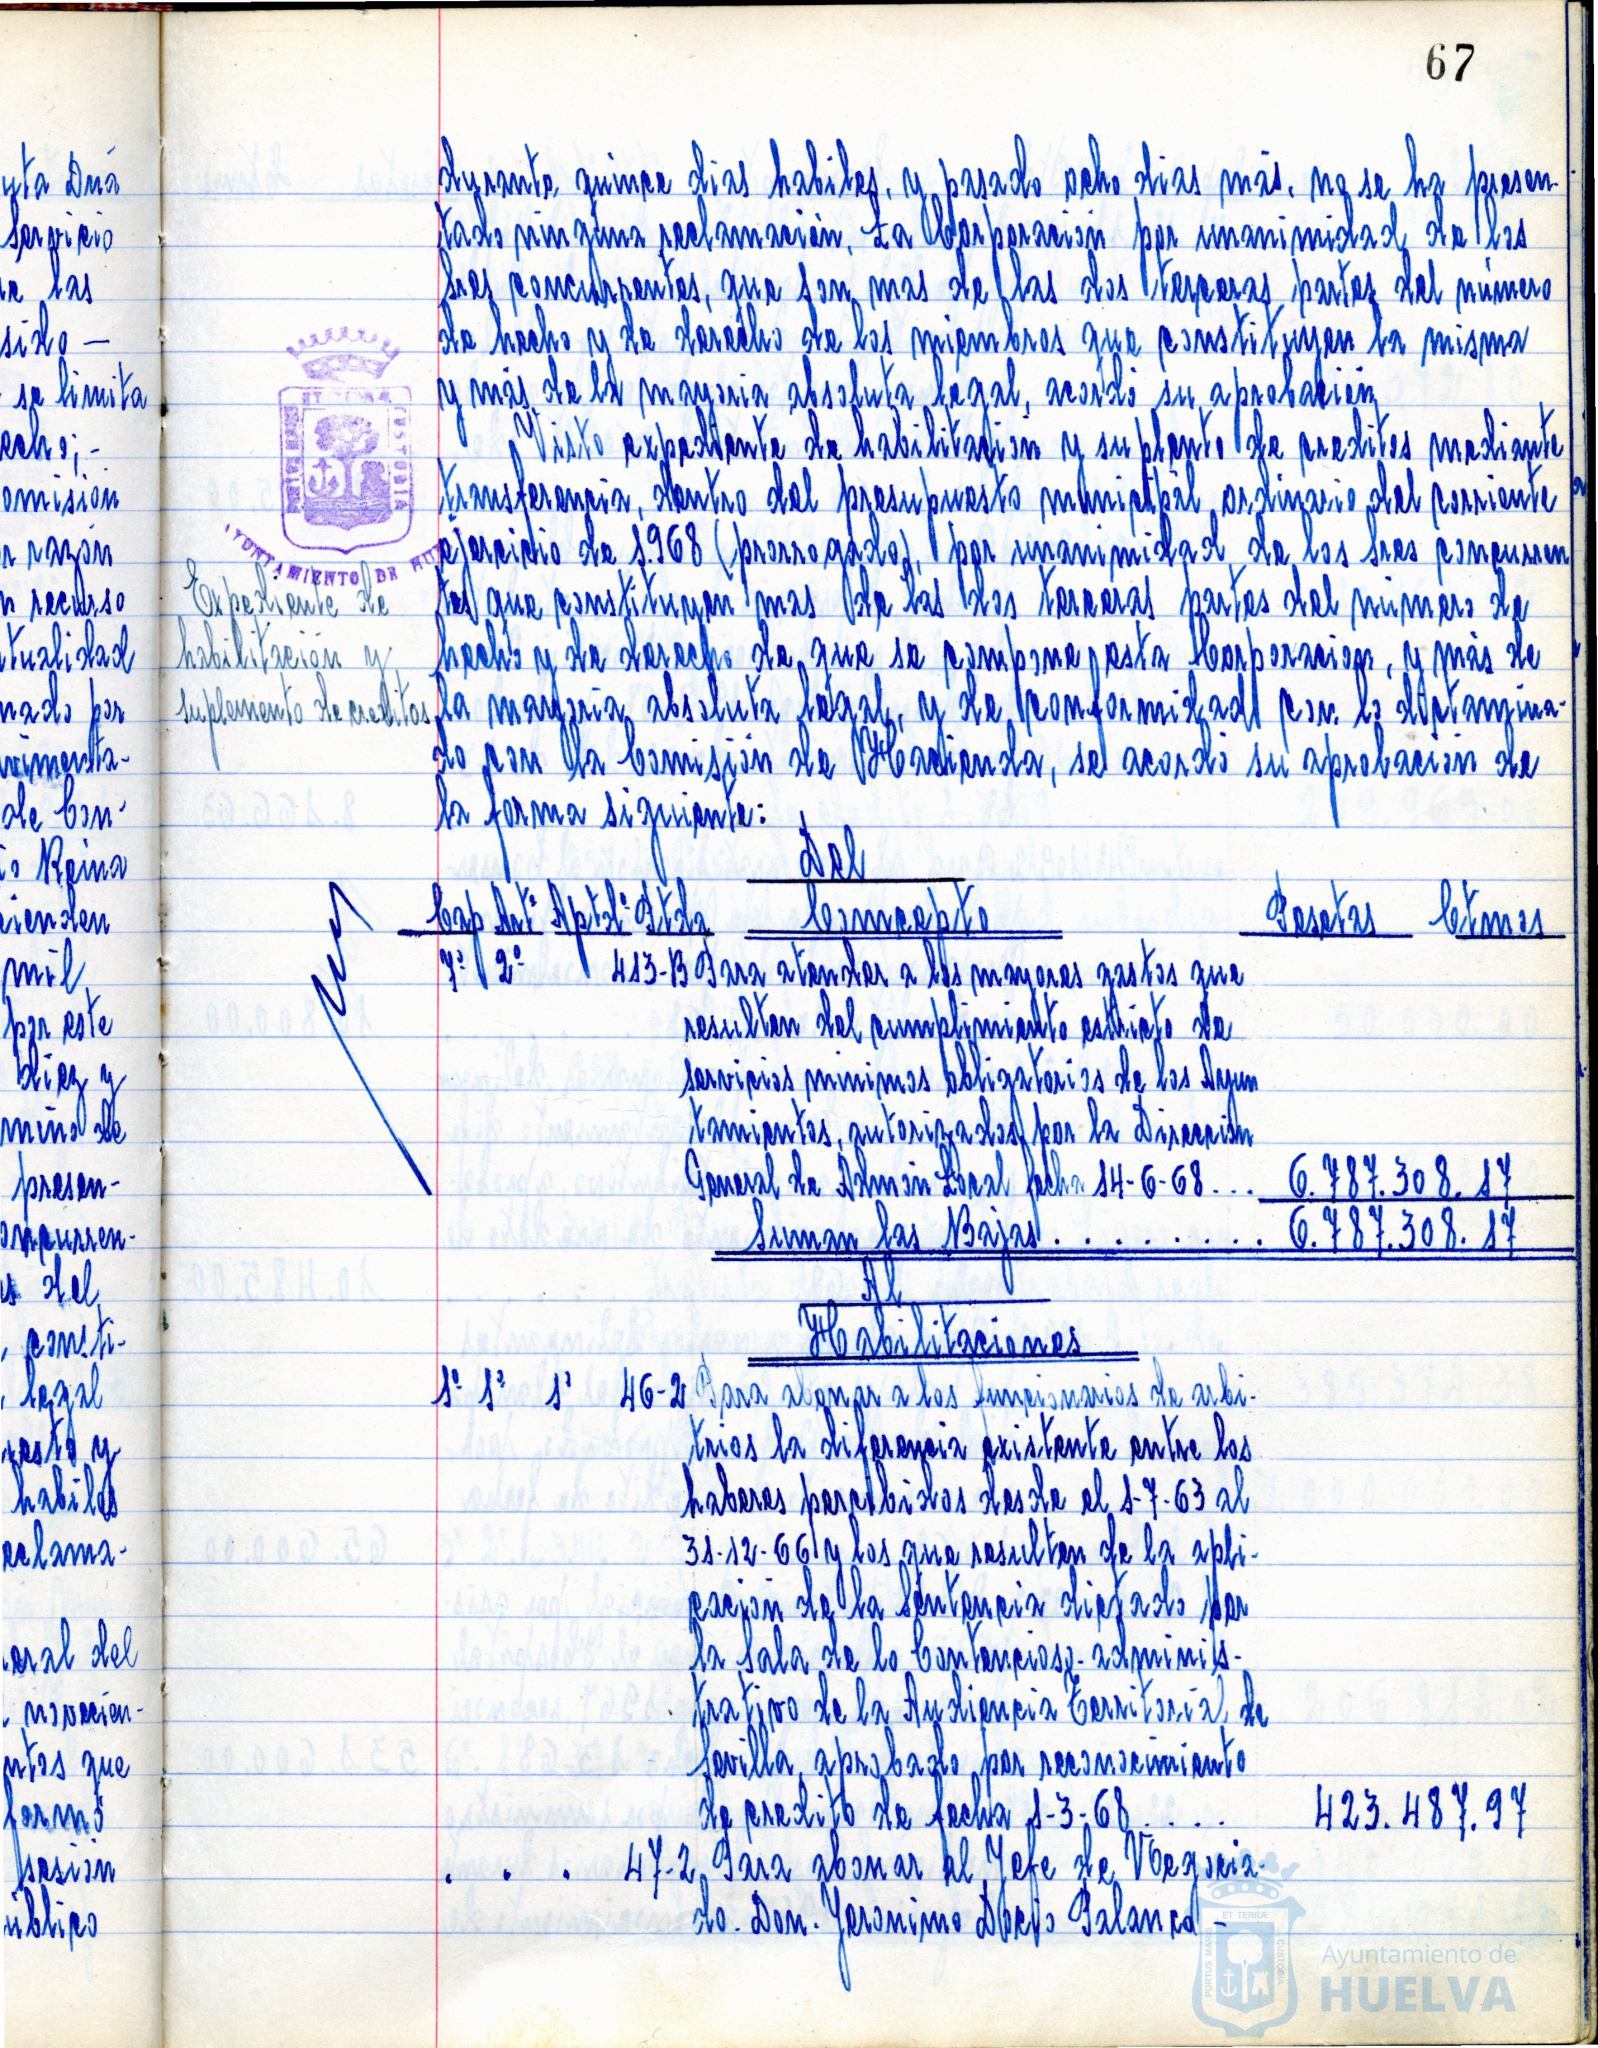 67
durante quince dias habiles, y pasado ocho dias más, no se ha presen-
tado ninguna reclamación, La Corporación por unanimidad de los
Sres concurrentes, que son mas de las dos terceras partes del número
de hecho y de derecho de los miembros que constituyen la misma
y más de la mayoria absoluta legal, acordó su aprobación
Visto expediente de habilitación y suplento de creditos mediante
transferencia, dentro del presupuesto municipal ordinario del corriente
ejercicio de 1.968 (prorrogado), por unanimidad de los Sres concurren
tes que constituyen mas de las dos terceras partes del número de
hecho y de derecho de que se compone esta Corporación, y más de
la mayoria absoluta legal, y de conformidad con lo dictamina-
do con la Comisión de Hacienda, se acordó su aprobación de
la forma siguiente:
Expediente de
habilitación y
suplemento de creditos
Del
Cap Artº Aptdº Ptda Concepto Pesetas Ctmos
7º 2º 413-B Para atender a los mayores gastos que
resulten del cumplimiento estricto de
servicios minimos obligatorios de los Ayun
tamientos, autorizados por la Dirección
General de Admon Local fecha 14-6-68 ... 6.787.308.17
Suman las Bajas .......... 6.787.308.17
Al
Habilitaciones
1º 1º 1º 46-2 Para abonar a los funcionarios de arbi-
trios la diferencia existente entre los
haberes percibidos desde el 1-7-63 al
31-12-66 y los que resulten de la apli-
cación de la Sentencia dictado por
la Sala de lo Contencioso-adminis-
trativo de la Audiencia Territorial de
Sevilla, aprobado por reconocimiento
de credito de fecha 1-3-68 .... 423.487.97
. . . 47-2 Para abonar al Jefe de Negocia-
do. Don. Jeronimo Palanco -
yta Dña
Servicio
las
sido —
se limita
echo; -
omisión
razón
recurso
tualidad
nado por
vimenta-
de Con-
Reina
cienden
mil
por este
diez y
mino de
presen-
oncurren-
del
, consti-
, legal
uesto y
habiles
eclama-
eral del
novecien-
ntos que
formó
sesión
úblico
ET TERRÆ
PORTUS MARIS
CUSTODIA
AYUNTAMIENTO DE HU
ET TERRÆ
PORTUS MARIS
CUSTODIA
Ayuntamiento de
HUELVA